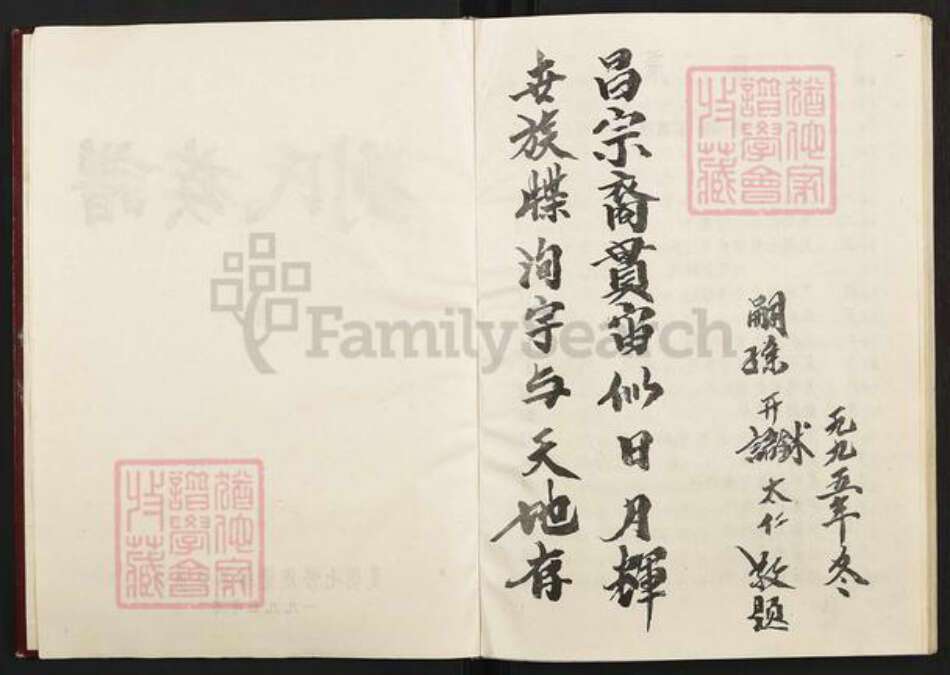 猶他家
譜學會
收藏
一九九五年冬
嗣孫开太仁敬題
昌宗裔貫宙似日月輝
世族牒洵宇与天地存
FamilySearch
猶他家
譜學會
收藏